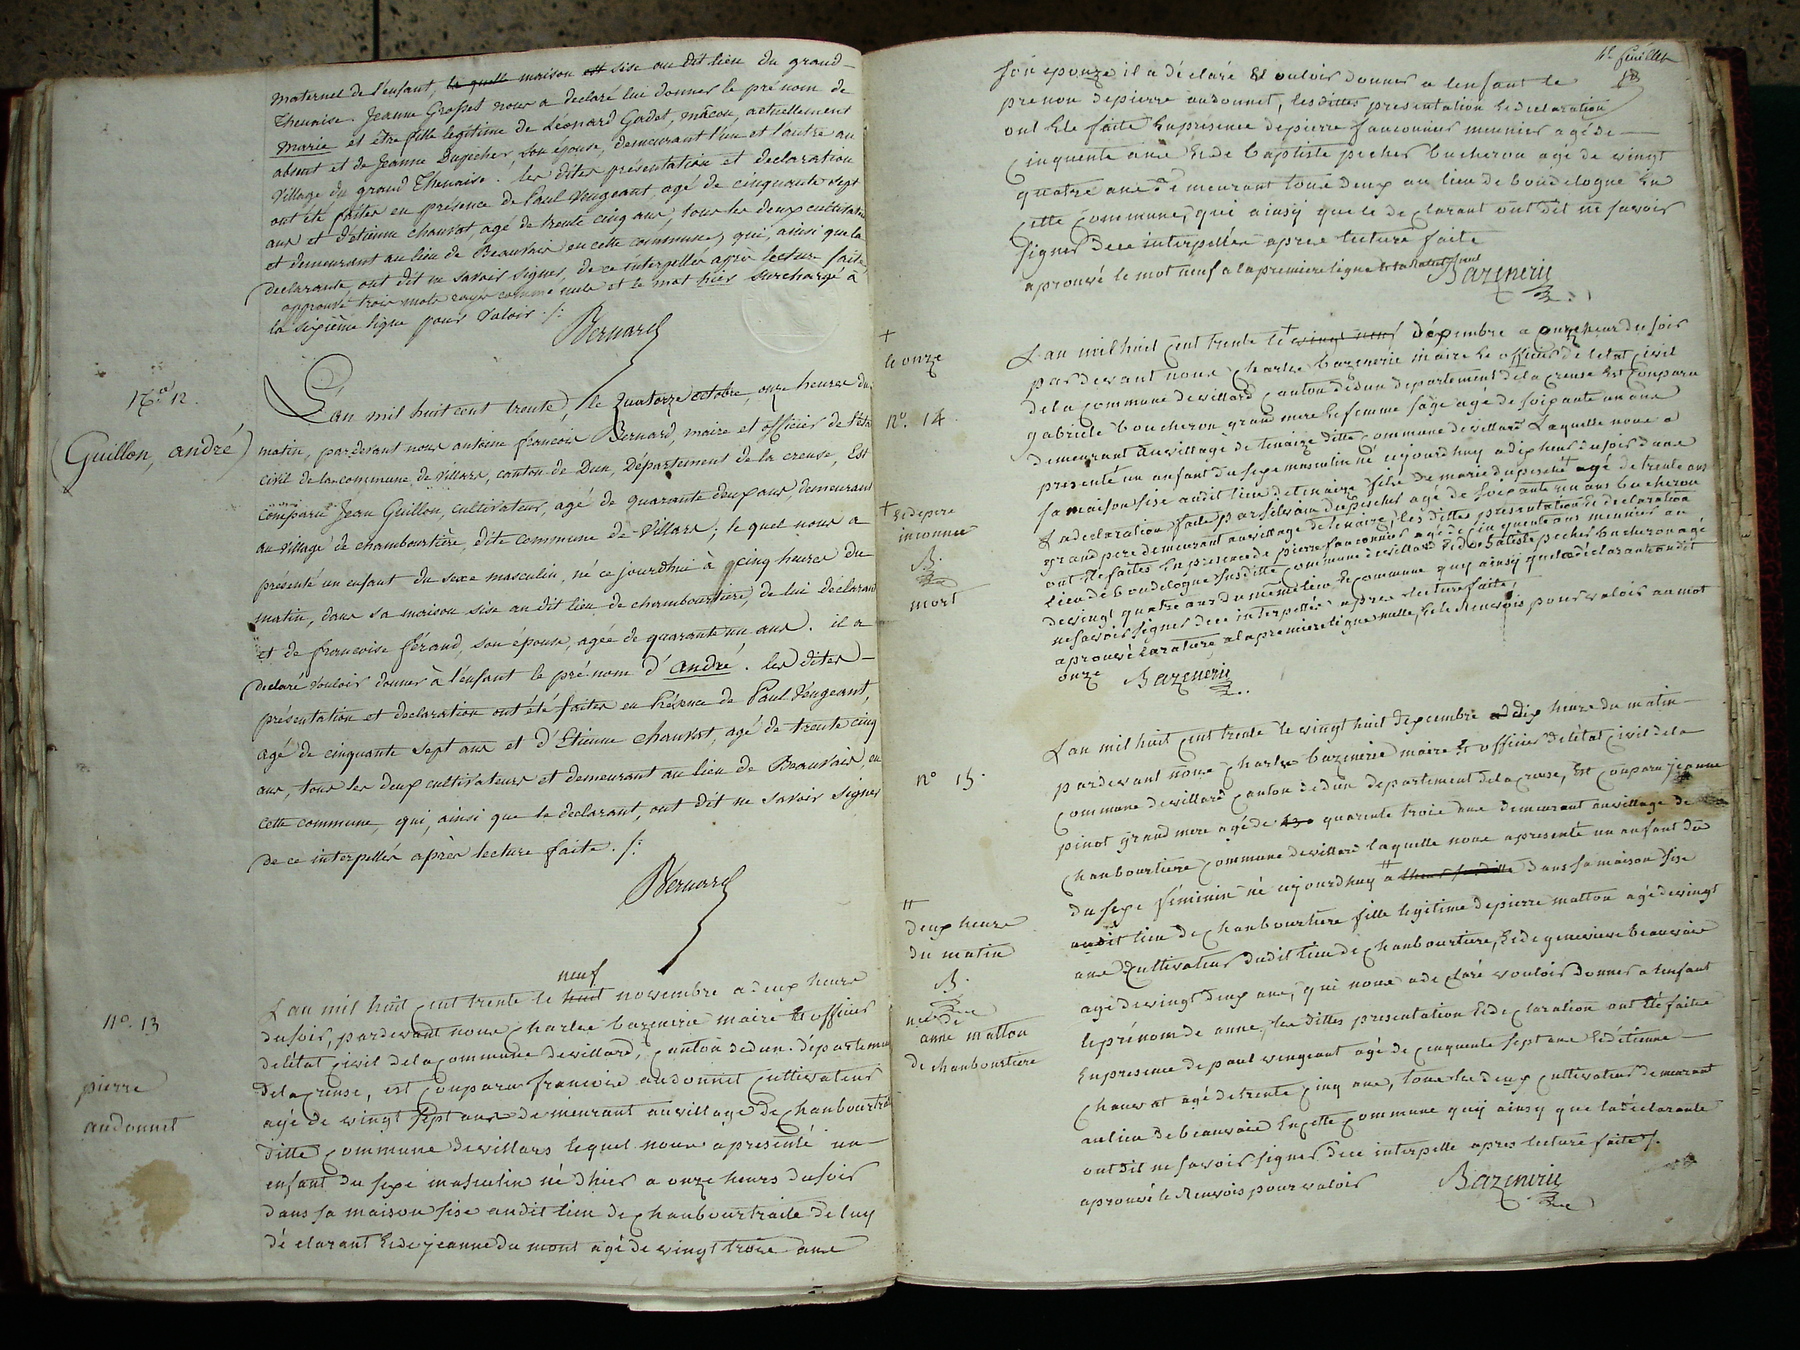 maternel de l'enfant, la quelle maison est sise au dit lieu du grand
Thenaise. Jeanne Grosset nous a déclaré lui donner le prénom de
Marie et être fille légitime de Léonard Godet, mâcon, actuellement
absent et de Jeanne Dupecher, son épouse, demeurant l'un et l'autre au
village du grand Thenaise. les dites présentation et declaration
ont été faites en présence de Paul Veugeant, agé de cinquante sept
ans et d'etienne chauvat, agé de trente cinq ans, tous les deux cultivateurs
et demeurant au lieu de Beauvais en cette commune, qui, ainsi que la
déclarante, ont dit ne savoir signer, de ce interpellés après lecture faite
approuvé trois mots rayés comme nuls et le mot hier surchargé à
la sixième ligne pour valoir ./:
Bernard
N.o 12.
(Guillon, andré)
L'an mil huit cent trente, le quatorze octobre, onze heures du
matin, pardevant nous antoine françois Bernard, maire et officier de l'état
civil de la commune de Villars, canton de Dun, Département de la creuse, Est
comparu Jean Guillon, cultivateur, agé de quarante deux ans, demeurant
au village de chambourtière, dite commune de Villars; le quel nous a
présenté un enfant du sexe masculin, né ce jourdhui à cinq heures du
matin, dans sa maison sise au dit lieu de chambourtière, de lui déclarant
et de françoise férand, son épouse, agée de quarante un ans. il a
déclaré vouloir donner à l'enfant le prénom d'andré. les dites
présentation et declaration ont été faites en présence de Paul Veugeant,
agé de cinquante sept ans et d'Etienne chauvat, agé de trente cinq
ans, tous les deux cultivateurs et demeurant au lieu de Beauvais, en
cette commune, qui, ainsi que le declarant, ont dit ne savoir signer
de ce interpellés après lecture faite. /:
Bernard
n.o 13
pierre
audonnet
neuf
L an mil huit cent trente le huit novembre a deux heure
du soir, pardevant nous charles bazenerie maire et officier
de létat civil de la commune de villard, canton de dun departement
de la creuse, est conparu francoise audonnet cultivateur
agé de vingt sept ans demeurant au village de chanbourtiere
ditte commune de villars lequel nous a presenté un
enfant du sexe masculin né dhier a onze heurs du soir
dans sa maison sise audit lieu de chanbourtraite de luy
déclarant et de jeanne du mont agé de vingt trois ans
4e feuillet
son epouze il a déclaré et vouloir donner a lenfant le
prenon de pierre audonnet, les dittes presentation et declaration
ont été faite en presence de pierre fauconnier meunier agé de
cinquente ans et de baptiste pecher bucheron agé de vingt
quatre ans demeurant tous deux au lieu de boudelogne en
cette commune, qui ainsy que le declarant ont dit ne savoir
signer de ce interpellés apres lecture faite
aprouvé le mot neuf a la premiere ligne
Bazenerie
+
le onze
n.o 14.
+ et de pere
inconnue
B.
mort
L an mil huit cent trente le + vingt neuf dépembre a onze heur du soir
pardevant nous charles bazenerie maire et officier de létat civil
de la commune de villard canton de dun departement de la creuse est conparu
gabriele boucheron grand mere et femme sage agé de soixante un ans
demeurant au village de tenaize ditte commune de villard laquelle nous a
presenté un anfant du sexe masculin né aujourdhuy a dix heur du soir dans
sa maison sise audit lieu de tenaize filis de marie dupeché agé de trente ans
la declaration faite par silvain dupecher agé de soixante un ans bucheron
grand pere demeurant au village de tenaize, les dittes presentation et declaration
ont été faites en presence de pierre fauconnier agé de cinquente ans meunier au
lieu de boudelogne susditte commune de villard et de batiste pecher bucheron agé
de vingt quatre ans du meme lieu et commune quy ainsy que la déclarante ont dit
ne savoir signer de ce interpellés apres lecture faite
aprouvé la rature a la premiere ligne nulle, et le renvois pour valoir au mot
onze
Bazenerie
n.o 15.
L an mil huit cent trente le vingt huit depcembre a dix heure du matin
pardevant nous charles bazenerie maire et officier de létat civil de la
commune de villard canton de dun departement de la creuse, est conparu jeanne
pinot grand mere agé de quarente trois ans demeurant au village de
chanbourtiere commune de villard laquelle nous a presenté un anfant du
du sexe féminin né aujourdhuy a # dans sa maison sise
audit lieu de chanbourtiere fille legitime de pierre matton agé de vingt
ans cultivateur dudit lieu de chanbourtiere, et de genevieve beauvais
agé de vingt deux ans, qui nous a declaré vouloir donner a lenfant
le prénom de anne, les dittes presentation et declaration ont été faites
en presence de paul vingeant agé de cinquente sept ans et détienne
chauvat agé de trente cinq ans, tous les deux cultivateur demeurant
au lieu de beauvais en cette commune quy ainsy que la déclarante
ont dit ne savoir signer de ce interpelle apres lecture faite /.
aprouvé le renvois pour valoir
Bazenerie
#
deux heure
du matin
B.
née de
anne matton
de chanbourtiere